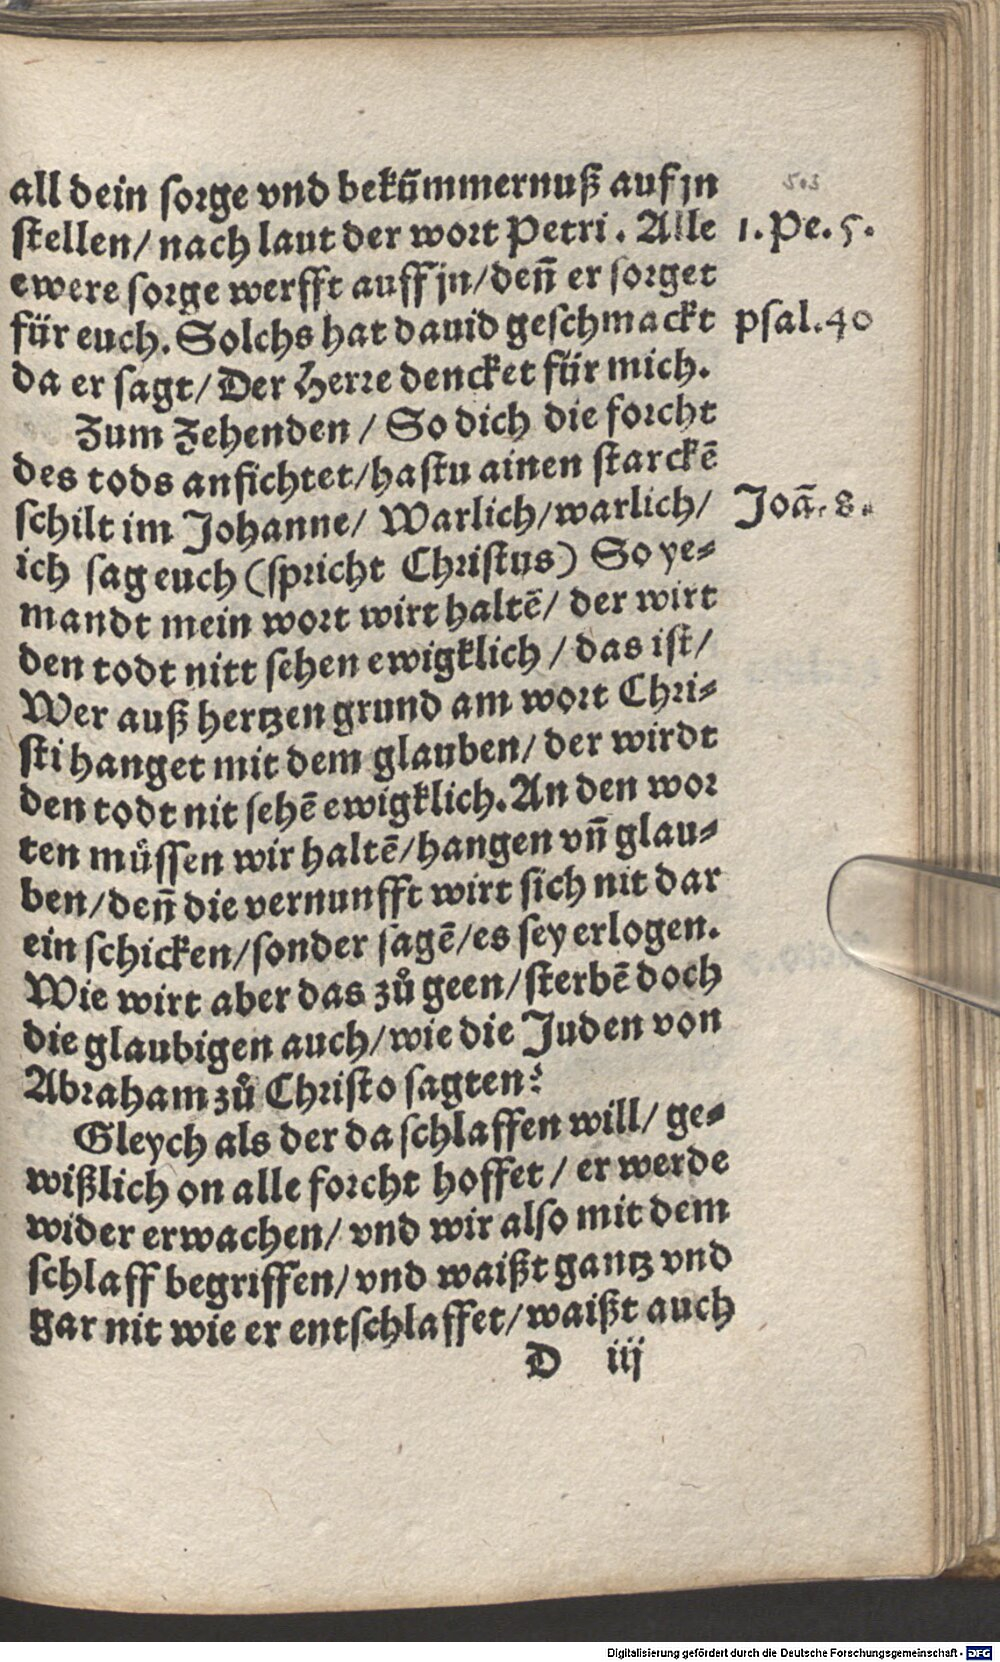 503
all dein sorge vnd bekům̃ernuß auf jn
stellen/ nach laut der wort Petri. Alle
1.Pe.5.
ewere sorge werfft auff jn/ den̄ er sorget
für euch. Solchs hat dauid geschmackt
psal.40
da er sagt/ Der Herre dencket für mich.
Zum Zehenden/ So dich die forcht
des tods anfichtet/ hastu ainen starckē
schilt im Johanne/ Warlich/ warlich/
Joā. 8.
ich sag euch (spricht Christus) So ye⸗
mandt mein wort wirt haltē/ der wirt
den todt nitt sehen ewigklich/ das ist/
Wer auß hertzen grund am wort Chri⸗
sti hanget mit dem glauben/ der wirdt
den todt nit sehē ewigklich. An den wor
ten müssen wir haltē/ hangen vn̄ glau⸗
ben/ den̄ die vernunfft wirt sich nit dar
ein schicken/ sonder sagē/ es sey erlogen.
Wie wirt aber das zů geen/ sterbē doch
die glaubigen auch/ wie die Juden von
Abraham zů Christo sagten?
Gleych als der da schlaffen will/ ge⸗
wißlich on alle forcht hoffet/ er werde
wider erwachen/ vnd wir also mit dem
schlaff begriffen/ vnd waißt gantz vnd
gar nit wie er entschlaffet/ waißt auch
D iij
Digitalisierung gefördert durch die Deutsche Forschungsgemeinschaft - DFG